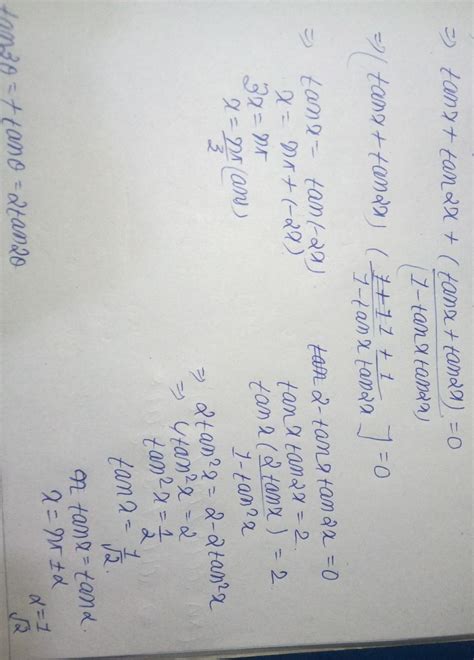 ⇒ tanx + tan2x + (tanx + tan2x)/(1 - tanx tan2x) = 0
⇒ (tanx + tan2x) (1 + 1/(1 - tanx tan2x)] = 0
⇒ tanx = tan(-2x)
x = nπ + (-2x)
3x = nπ
x = nπ/3 (ans)
2 - tanx tan2x = 0
tanx tan2x = 2
tanx (2tanx/(1 - tan²x)) = 2
⇒ 2tan²x = 2 - 2tan²x
⇒ 4tan²x = 2
tan²x = 1/2
tanx = 1/√2
tanx = tanα
x = nπ ± α
α = 1/√2